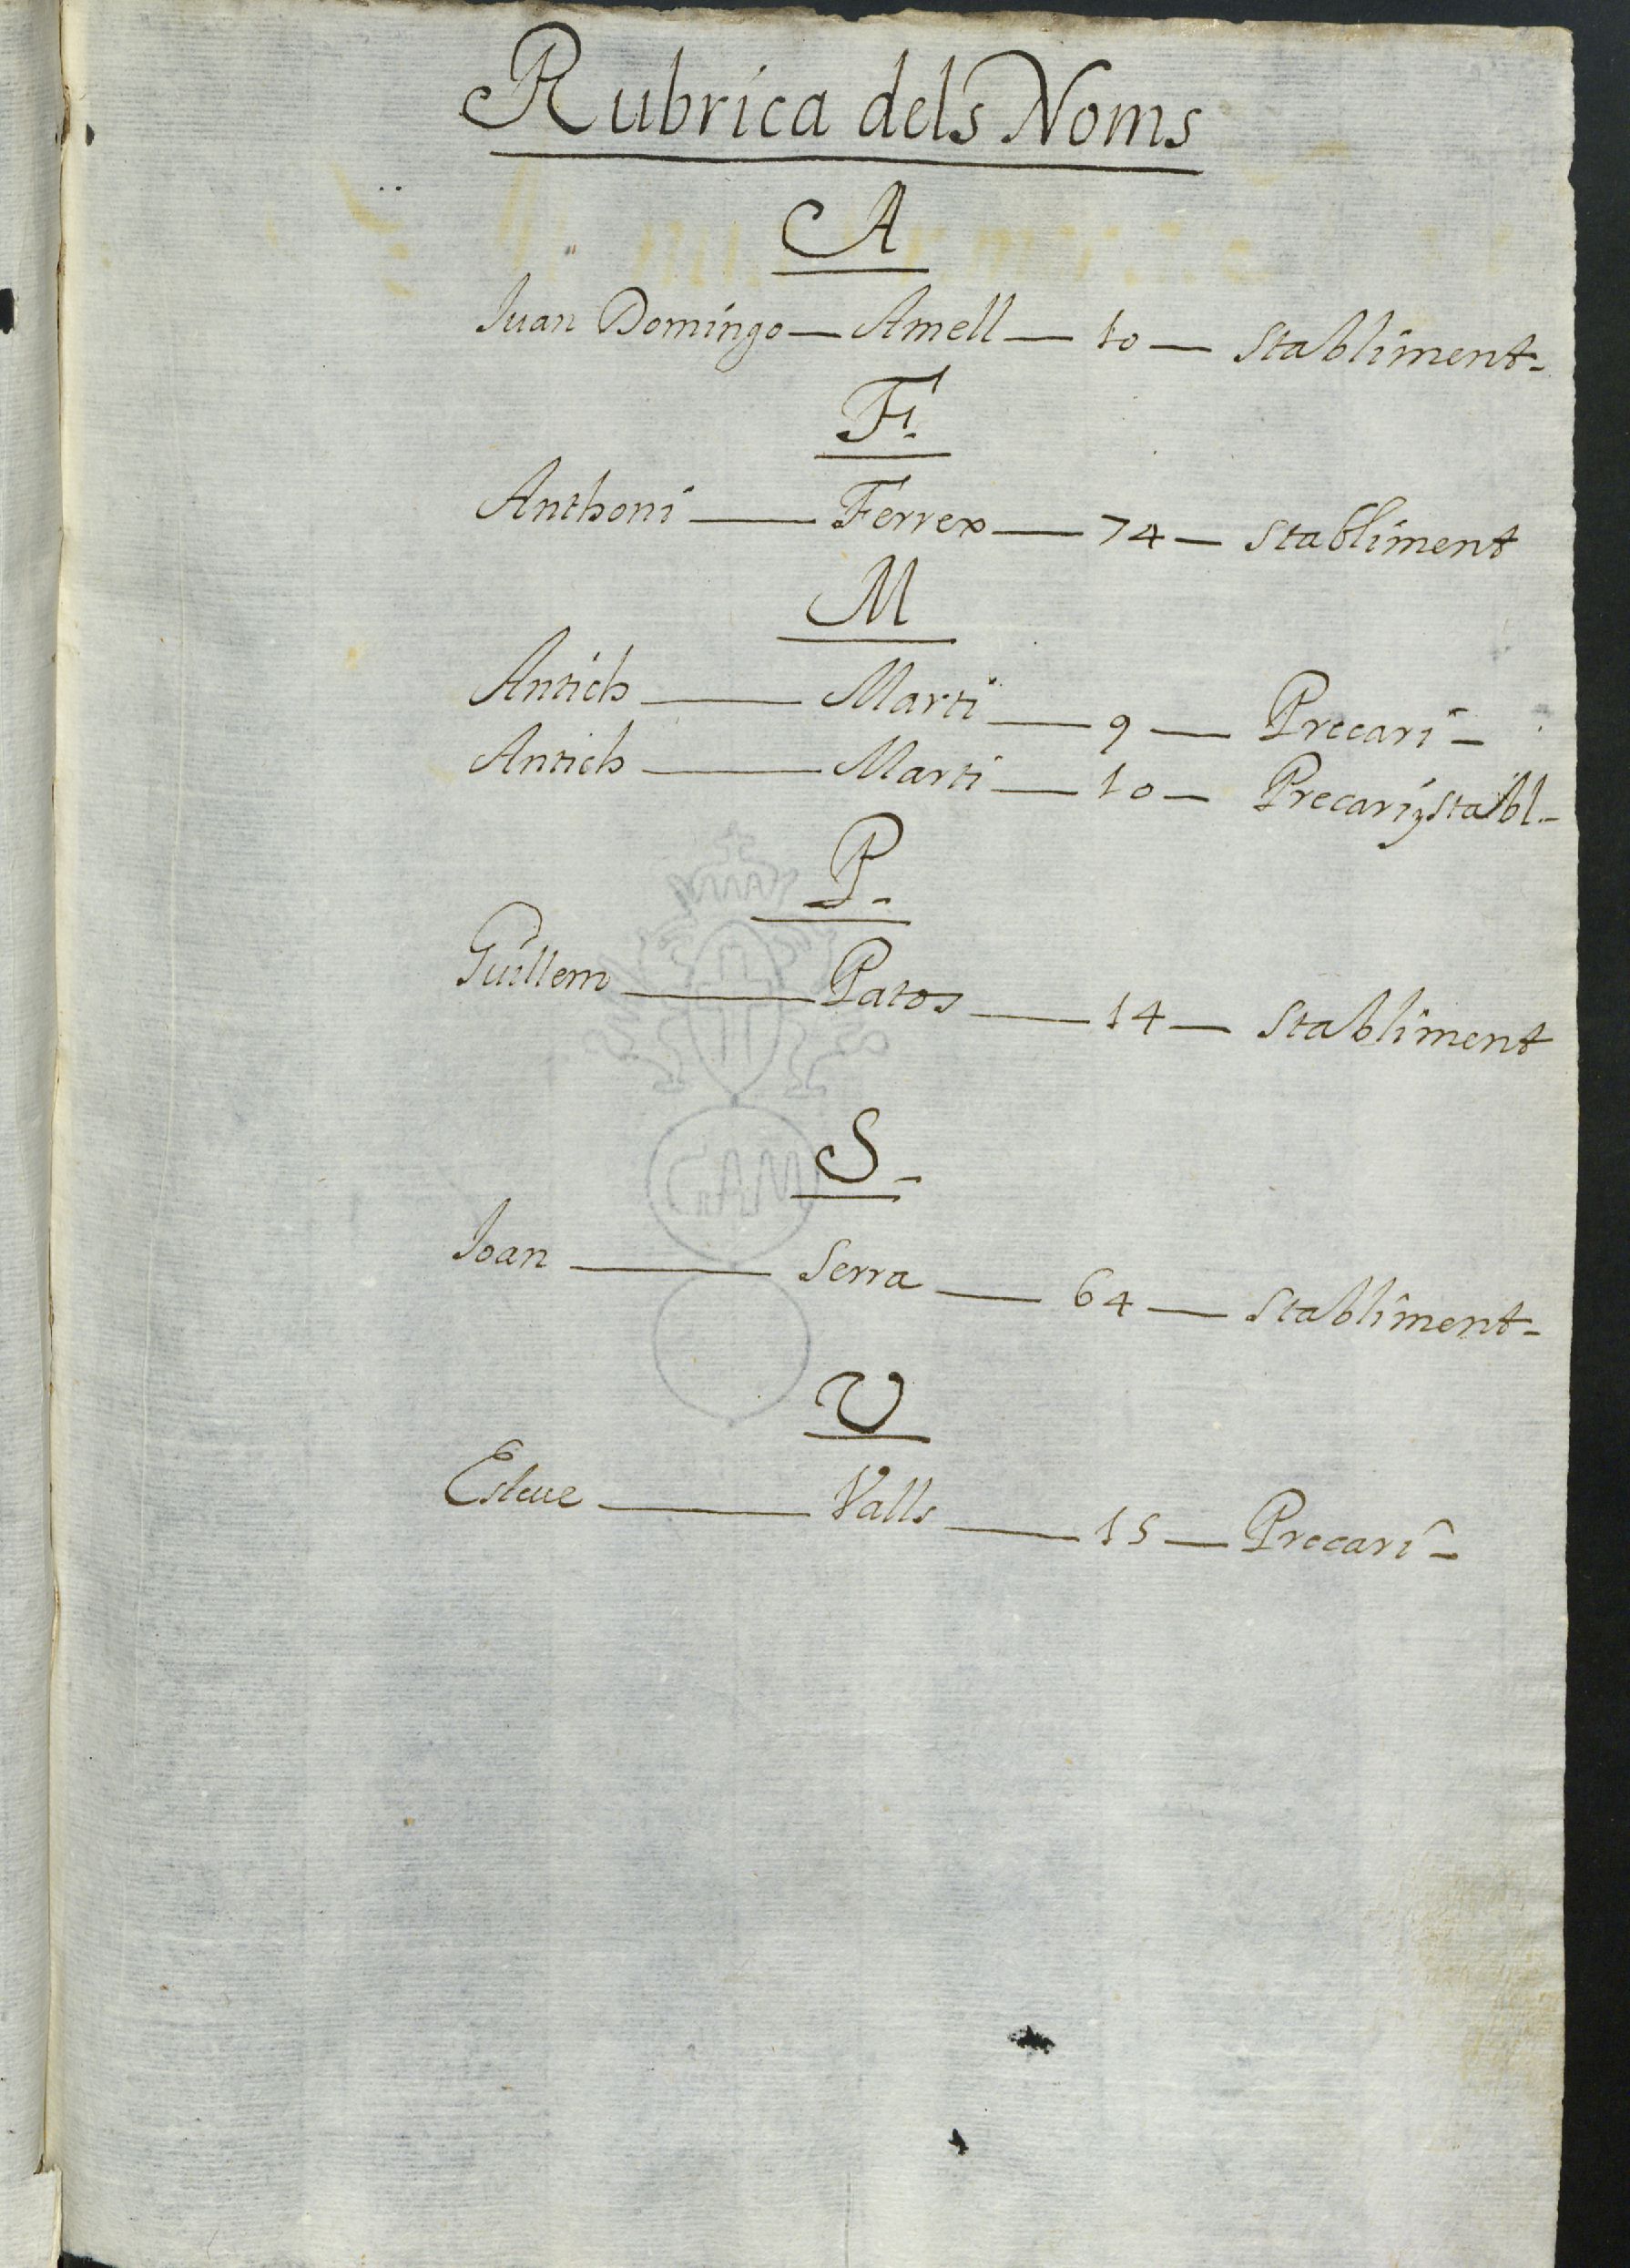 Rubrica dels Noms
A
Juan Domingo — Amell — 10 — Stabliment -
F.
Anthoni — Ferrer — 74 — Stabliment
M
Antich — Marti — 9 — Precari -
Antich — Marti — 10 — Precari, y stabl. -
P.
Guillem — Patos — 14 — Stabliment
S -
Joan — Serra — 64 — Stabliment -
V
Esteue — Valls — 15 — Precari -